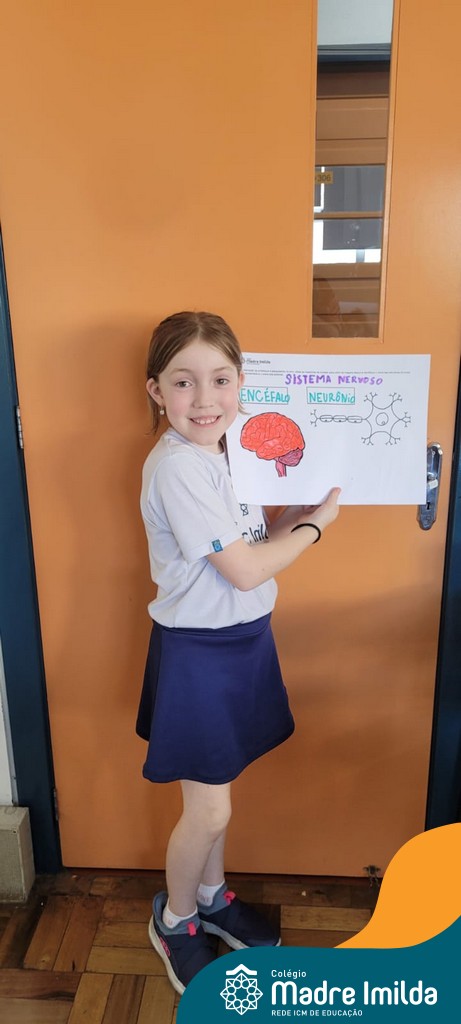 306
Madre Imilda
SISTEMA NERVOSO
ENCÉFALO NEURÔNIO
Colégio
Madre Imilda
REDE ICM DE EDUCAÇÃO